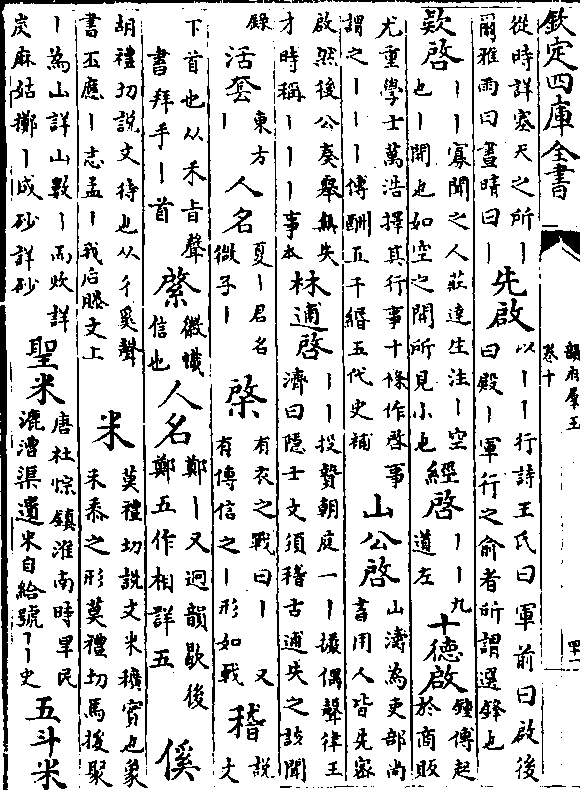 欽定四庫全書
韻府羣玉
卷十
從時詳塞天之所丨
爾雅雨曰晝晴曰丨
先啟
以丨丨行詩王氏曰軍前曰啟後
曰殿丨軍行之前者所謂選鋒也
欵啓
丨丨寡聞之人莊達生注丨空
也丨開也如空之開所見小也
經啓
丨丨九
道左
十德啟
鍾傅起
於商販
尤重學士萬浩擇其行事十條作啓事
謂之丨丨丨傅酬五千緡五代史補
山公啟
山濤為吏部尚
書用人皆先密
啟然後公奏舉無失
才時稱丨丨丨事本
林逋啓
丨丨投贄朝庭一丨攝偶聲律王
濟曰隐士文須稽古逋失之該聞
録
活套
東方
丨
人名
夏丨君名
微子丨
棨
有衣之戟曰丨又
有傳信之丨形如戟
稽
說
文
下首也从禾㫖聲
書拜手丨首
綮
微幟
信也
人名
鄭丨又迥韻歇後
鄭五作相詳五
傒
胡禮切說文待也从彳奚聲
書丕應丨志孟丨我后滕文上
米
莫禮切說文米穬實也象
禾黍之形莫禮切馬援聚
丨為山詳山數丨而炊詳
炭麻姑擲丨成砂詳砂
聖米
唐杜悰鎮淮南時旱民
漉漕渠遺米自給號丨丨史
五斗米